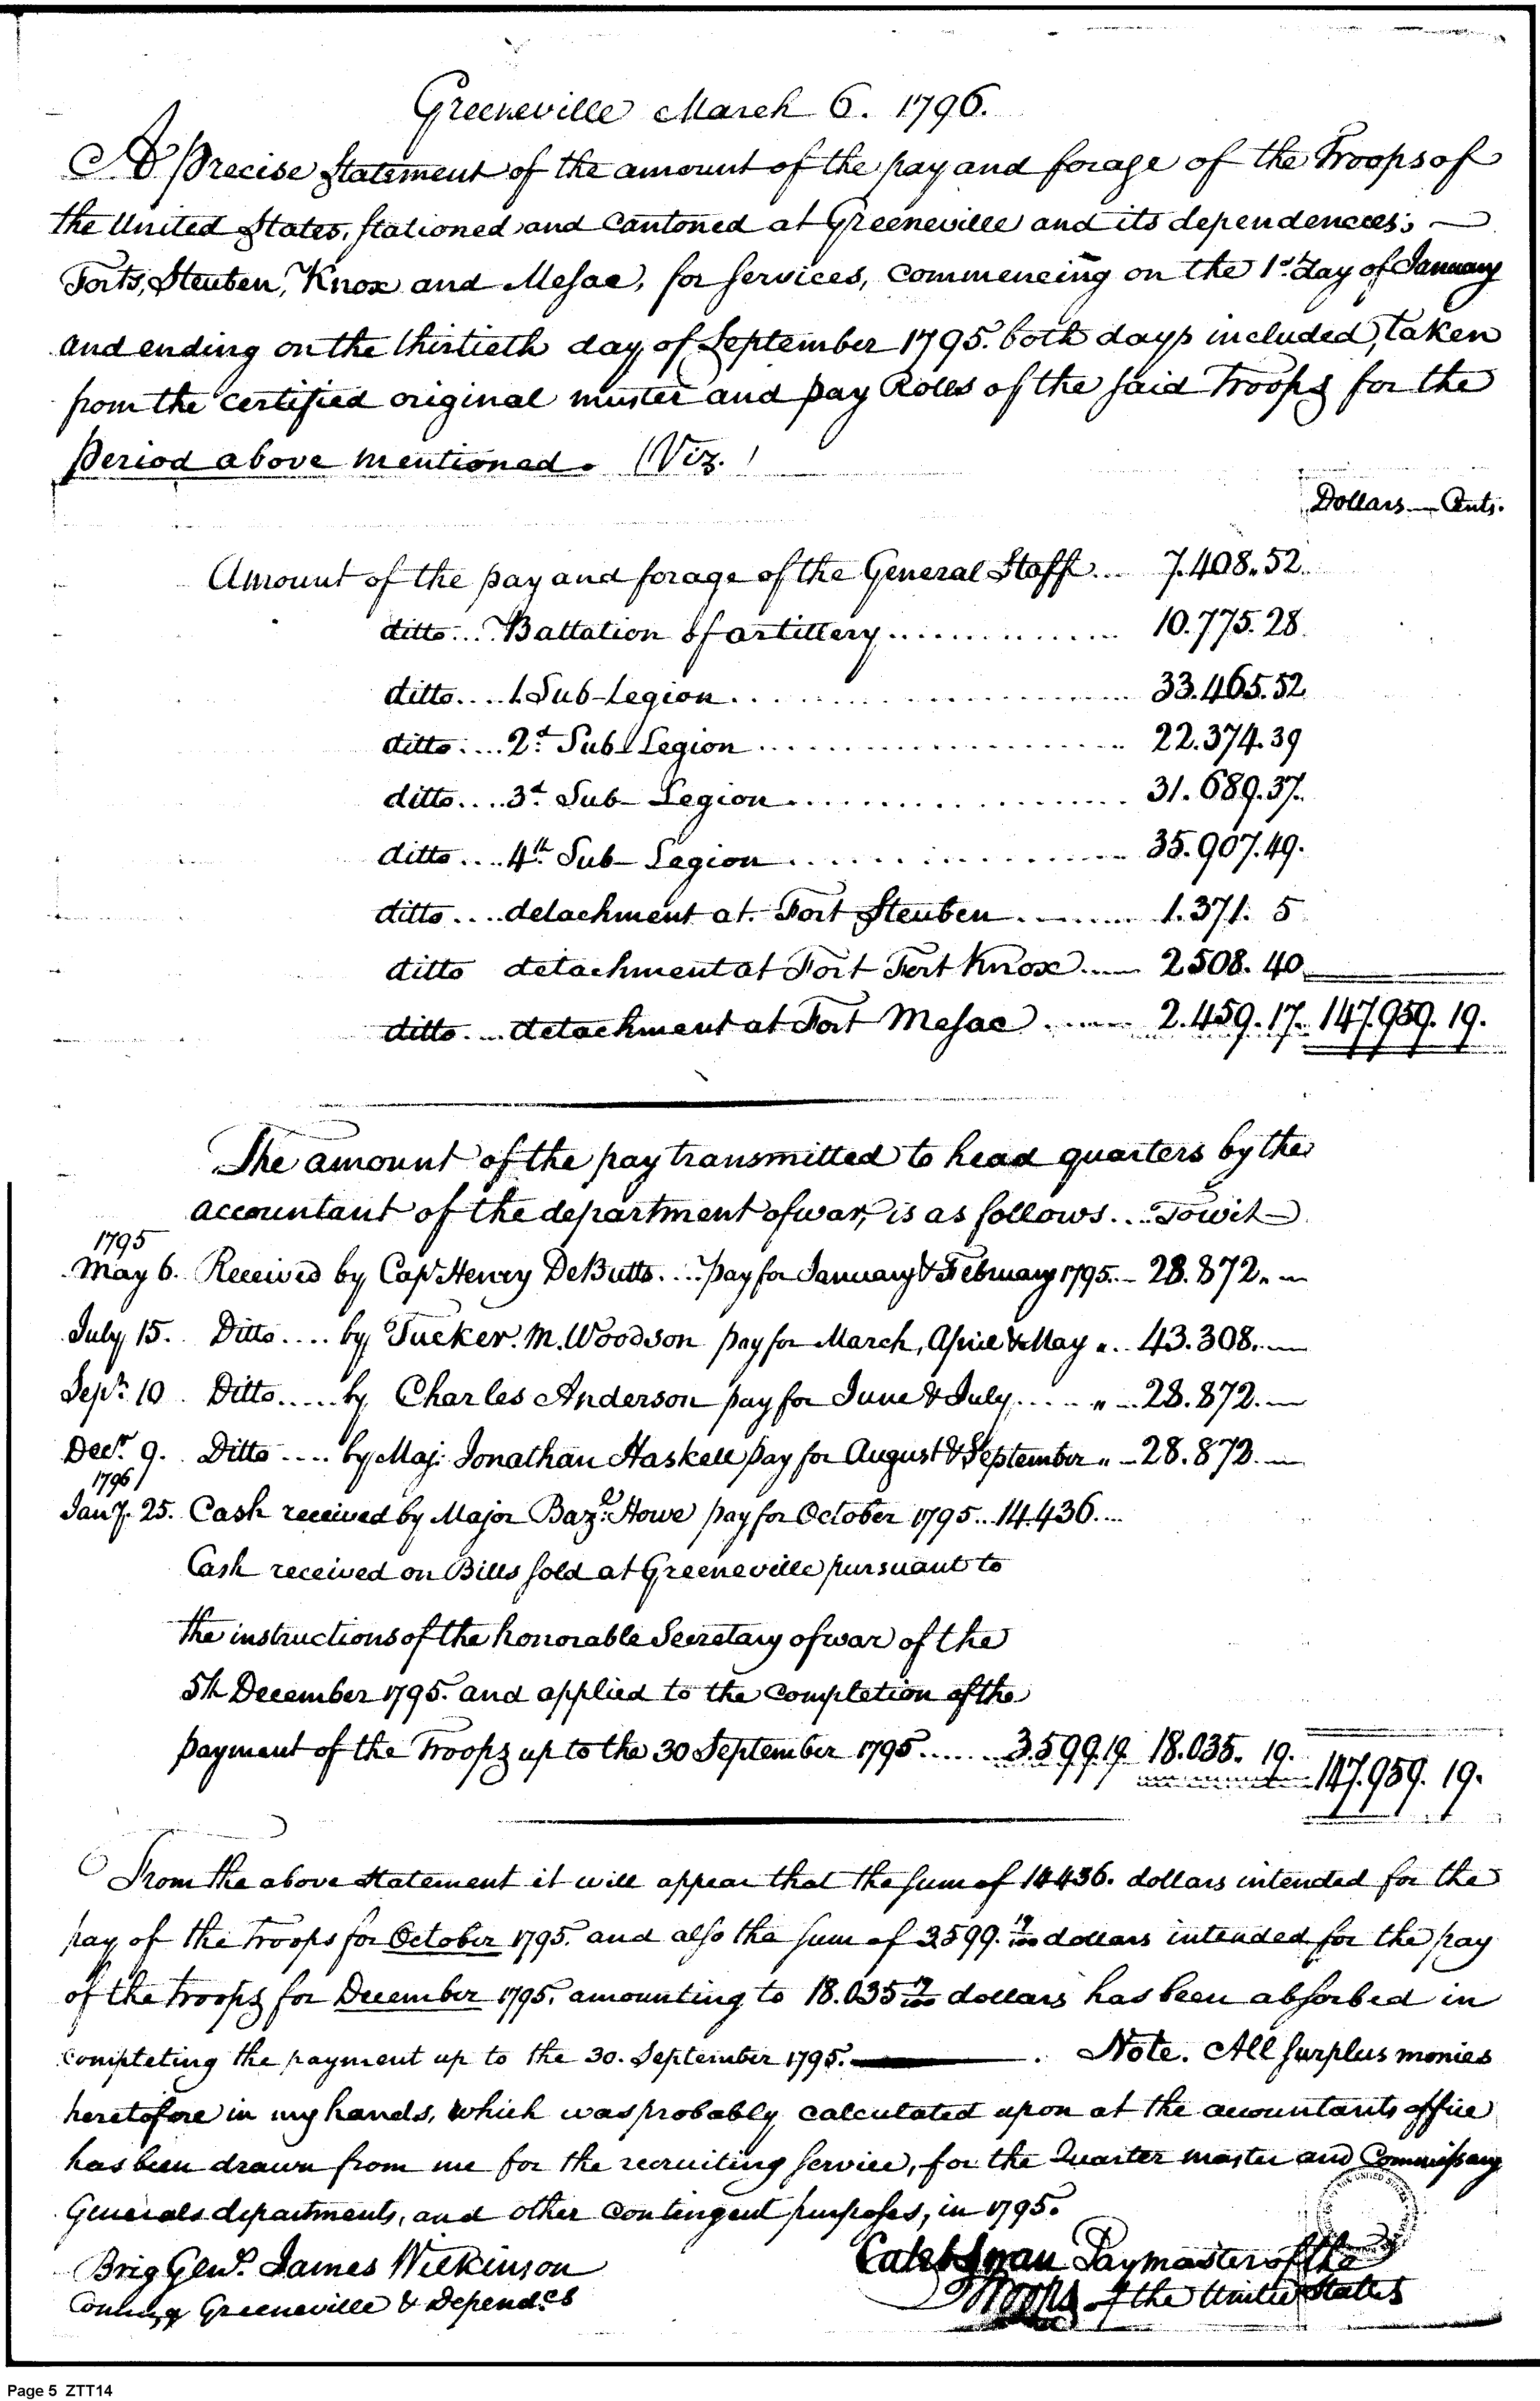 Greeneville March 6. 1796.
A Precise Statement of the amount of the pay and forage of the Troops of
the United States, stationed and Cantoned at Greeneville and its dependences; —
Forts, Steuben, Knox and Mesac, for services, commencing on the 1st day of January
and ending on the thirtieth day of September 1795. both days included, taken
from the certified original muster and pay Rolls of the said Troops for the
period above mentioned. (Viz.)
Dollars — Cents.
Amount of the pay and forage of the General Staff... 7.408.52.
ditto... Battalion of artillery.............. 10.775.28.
ditto.... 1. Sub-Legion.................. 33.465.52
ditto.... 2d. Sub Legion.................. 22.374.39
ditto.... 3d. Sub-Legion.................. 31.689.37.
ditto.... 4th. Sub-Legion.................. 35.907.49.
ditto.... detachment at Fort Steuben......... 1.371. 5
ditto detachment at Fort Fort Knox..... 2508. 40
ditto.... detachment at Fort Mesac....... 2.459.17. 147.959.19.
The amount of the pay transmitted to head quarters by the
accountant of the department of war, is as follows... Towit—
1795
May 6. Received by Capt Henry DeButts.... pay for January & February 1795.. 28.872. —
July 15. Ditto.... by Tucker. M. Woodson pay for March, Aprie & May ".. 43.308. —
Sept. 10 Ditto..... by Charles Anderson pay for June & July..... " .. 28.872. —
Decr. 9. Ditto.... by Maj: Jonathan Haskell pay for August & September " .. 28.872. —
1796
Jany. 25. Cash received by Major Bazl. Howe pay for October 1795.. 14.436....
Cash received on Bills sold at Greeneville pursuant to
the instructions of the honorable Secretary of war of the
5th December 1795. and applied to the completion of the
payment of the Troops up to the 30 September 1795...... 3.599.19 18.035. 19. 147.959. 19.
From the above statement it will appear that the sum of 14436. dollars intended for the
pay of the Troops for October 1795. and also the sum of 3599. 19/100 dollars intended for the pay
of the Troops for December 1795. amounting to 18.035 19/100 dollars has been absorbed in
completing the payment up to the 30. September 1795. — . Note. All surplus monies
heretofore in my hands, which was probably calculated upon at the accountants office
has been drawn from me for the recruiting service, for the Quarter master and Commissary
Generals departments, and other contingent purposes, in 1795.
Brig Genl. James Wilkinson
Comdg Greeneville & Dependces
Caleb Swan Paymaster of the
Troops of the United States
Page 5 ZTT14